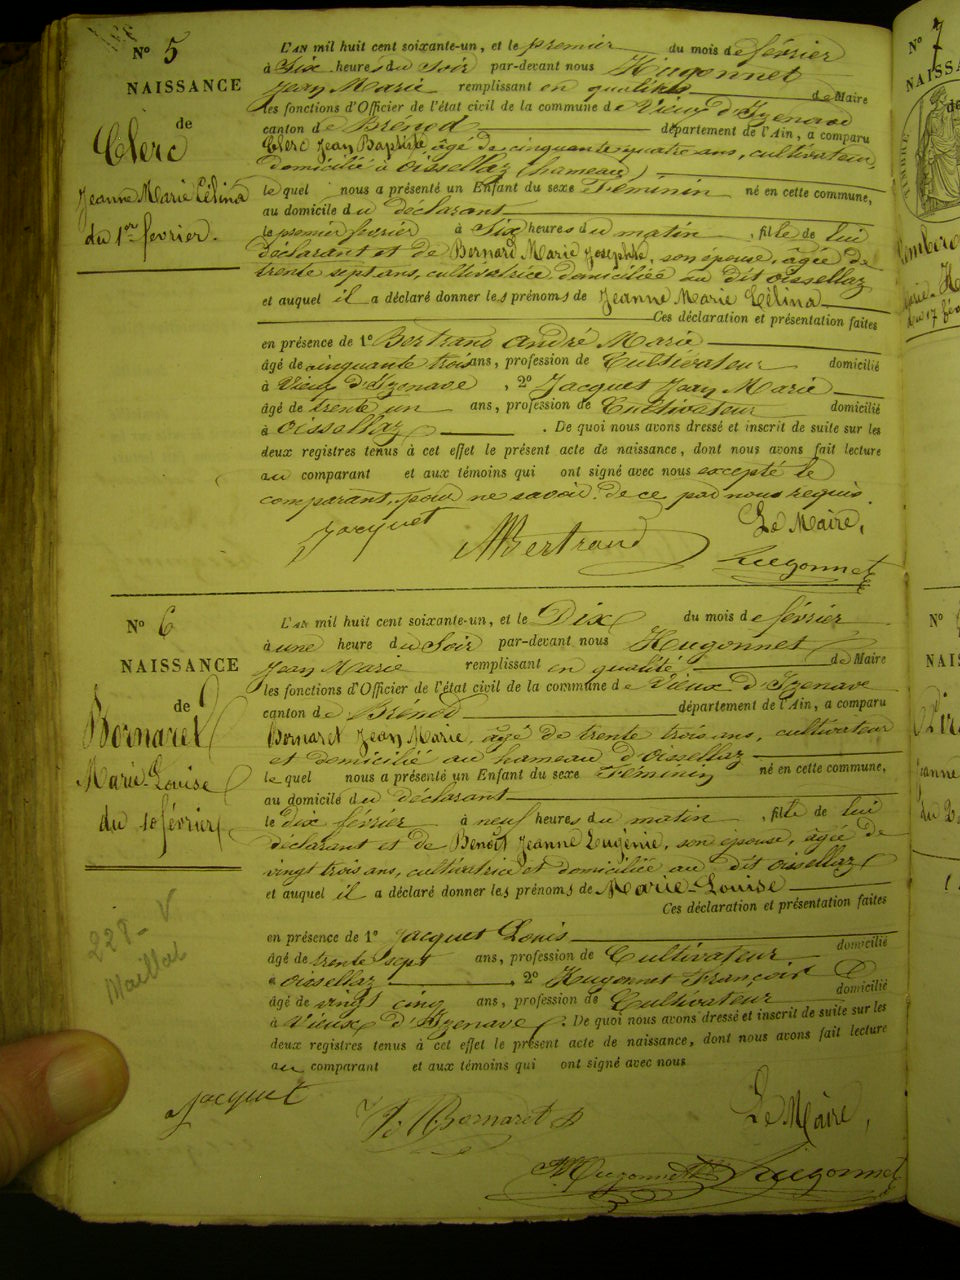 N° 5
NAISSANCE
de
Clerc
Jeanne Marie Célina
du 1er février.
L'AN mil huit cent soixante-un, et le premier du mois de février
à Six heures du Soir par-devant nous Hugonnet
Jean Marie remplissant en qualité de Maire
les fonctions d'Officier de l'état civil de la commune de Vieux d'Izenave
canton de Brénod département de l'Ain, a comparu
Clerc Jean Baptiste âgé de cinquante quatre ans, cultivateur,
domicilié à oissellaz (hameau)
le quel nous a présenté un Enfant du sexe Féminin né en cette commune,
au domicile du déclarant
le premier février à Six heures du matin, fille de lui
déclarant et de Bernard Marie Josephte, son épouse, âgée de
trente sept ans, cultivatrice domiciliée au dit oissellaz
et auquel il a déclaré donner les prénoms de Jeanne Marie Célina
Ces déclaration et présentation faites
en présence de 1° Bertrand André Marie
âgé de cinquante trois ans, profession de Cultivateur domicilié
à Vieux d'Izenave, 2° Jacquet Jean Marie
âgé de trente un ans, profession de Cultivateur domicilié
à oissellaz. De quoi nous avons dressé et inscrit de suite sur les
deux registres tenus à cet effet le présent acte de naissance, dont nous avons fait lecture
au comparant et aux témoins qui ont signé avec nous excepté le
comparant, pour ne savoir, de ce par nous requis.
Jacquet Bertrand Le Maire,
Hugonnet
N° 6
NAISSANCE
de
Bornaret
Marie-Louise
du 10 février
228- V
Maillat
L'AN mil huit cent soixante-un, et le Dix du mois de février
à une heure du Soir par-devant nous Hugonnet
Jean Marie remplissant en qualité de Maire
les fonctions d'Officier de l'état civil de la commune de Vieux d'Izenave
canton de Brénod département de l'Ain, a comparu
Bornaret Jean Marie, âgé de trente trois ans, cultivateur
et domicilié au hameau d'oissellaz
le quel nous a présenté un Enfant du sexe Féminin né en cette commune,
au domicile du déclarant
le dix février à neuf heures du matin, fille de lui
déclarant et de Benoît Jeanne Eugénie, son épouse, âgée de
vingt trois ans, cultivatrice et domiciliée au dit oissellaz
et auquel il a déclaré donner les prénoms de Marie-Louise
Ces déclaration et présentation faites
en présence de 1° Jacquet Louis
âgé de trente sept ans, profession de Cultivateur domicilié
à oissellaz, 2° Hugonnet François
âgé de vingt cinq ans, profession de Cultivateur domicilié
à Vieux d'Izenave. De quoi nous avons dressé et inscrit de suite sur les
deux registres tenus à cet effet le présent acte de naissance, dont nous avons fait lecture
au comparant et aux témoins qui ont signé avec nous
Jacquet Bornaret Le Maire,
Hugonnet Hugonnet
N° 7